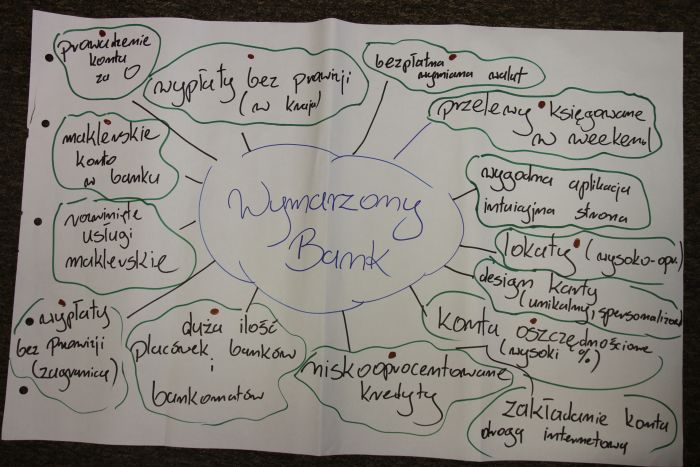 prowadzenie
konta
za 0
wypłaty bez prowizji
(w kraju)
bezpłatna
wymiana walut
przelewy księgowane
w weekend
maklerskie
konto
w banku
Wymarzony
Bank
wygodna aplikacja
intuicyjna strona
rozwinięte
usługi
maklerskie
lokaty (wysoko-opr.)
design karty
(unikalny, spersonalizow)
wypłaty
bez prowizji
(zagranicą)
duża ilość
placówek banków
i
bankomatów
konta oszczędnościowe
(wysoki %)
niskooprocentowane
kredyty
zakładanie konta
drogą internetową